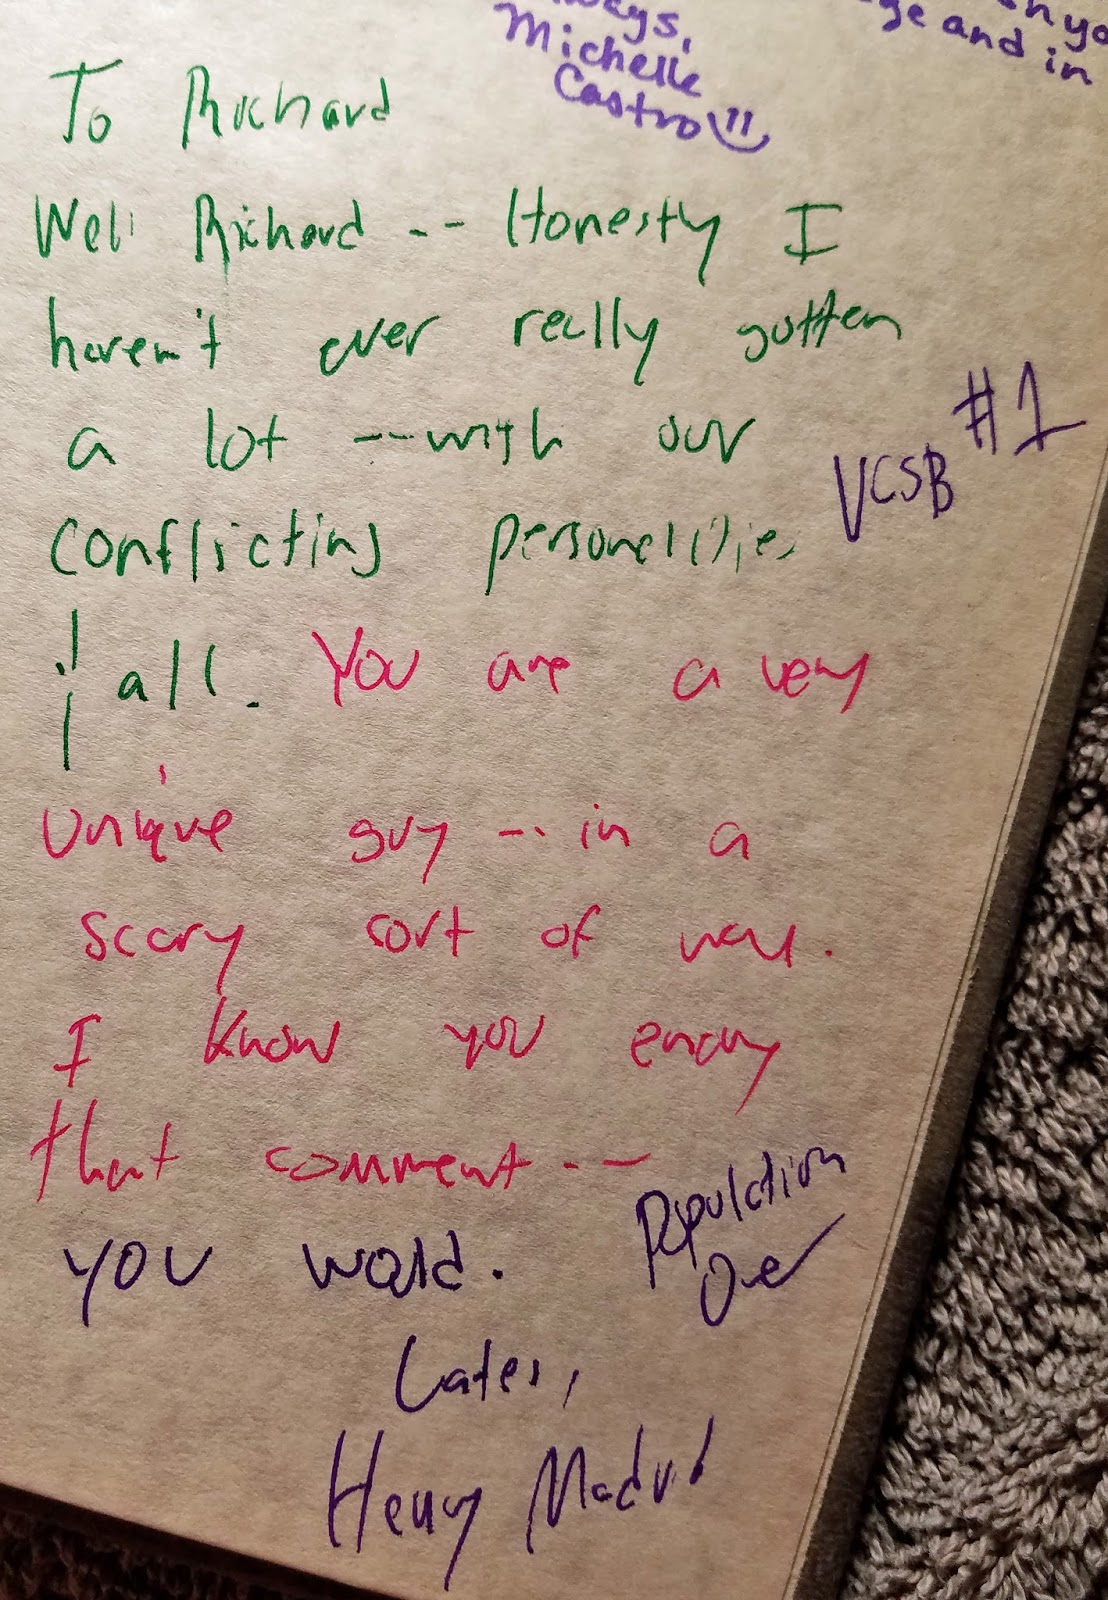 ays,
Michelle
Castro
ge and in
To Richard
Well Richard -- Honesty I
haven't ever really gotten
a lot --- with our
#1
UCSB
conflicting personalities
& all. You are a very
unique guy -- in a
scary sort of way.
I know you enjoy
that comment --
you would.
Population
One
Later,
Henry Madrid